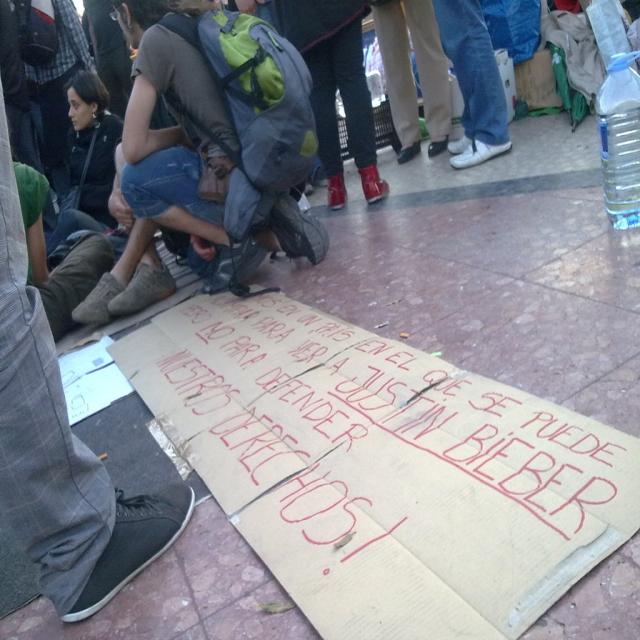 EN EL QUE SE PUEDE
PARA VER A JUSTIN BIEBER
NO PARA DEFENDER
NUESTROS DERECHOS!